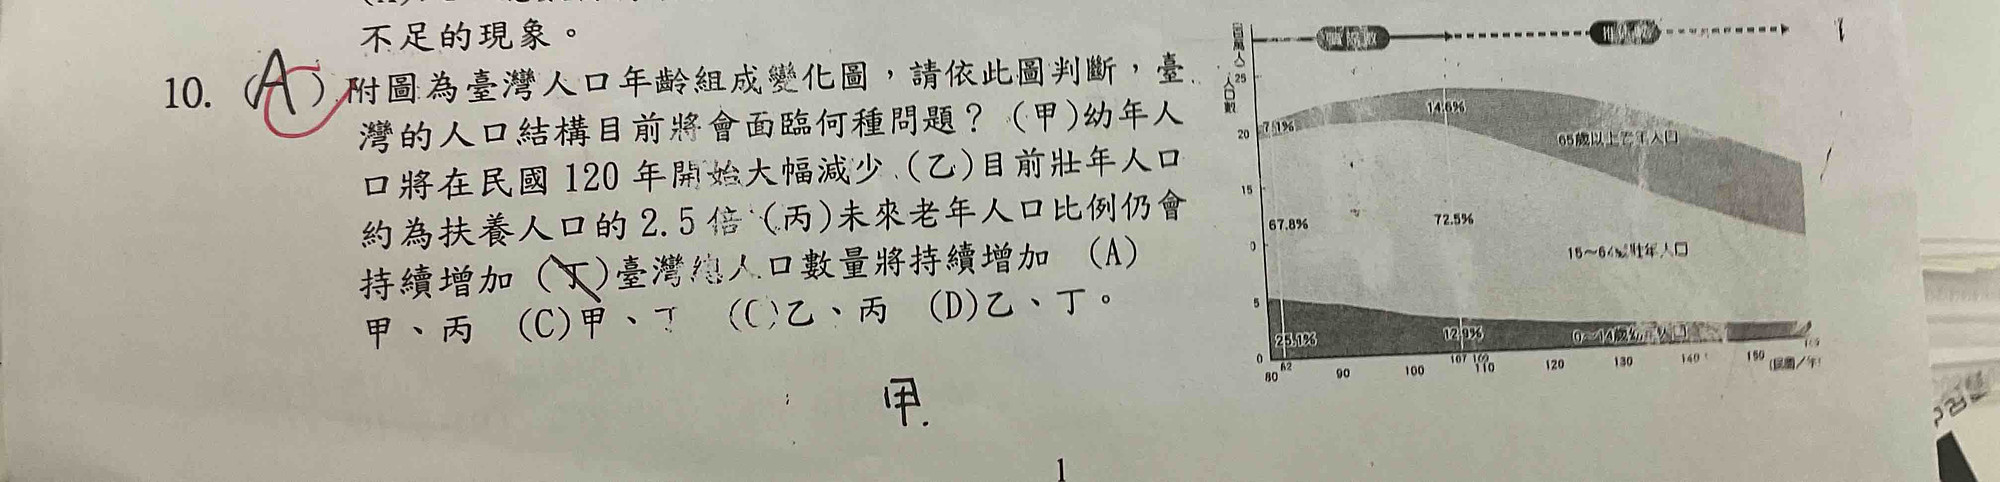 不足的現象。
10. (A)附圖為臺灣人口年齡組成變化圖，請依此圖判斷，臺
灣的人口結構目前將會面臨何種問題？(甲)幼年人
口將在民國120年開始大幅減少、(乙)目前壯年人口
約為扶養人口的2.5倍 (丙)未來老年人口比例仍會
持續增加 (丁)臺灣總人口數量將持續增加 (A)
甲、丙 (C)甲、丁 (C)乙、丙 (D)乙、丁。
甲.
1
(百萬人)
人口數
25
20
15
5
0
7.1%
14.6%
65歲以上老年人口
67.8%
72.5%
15～64歲壯年人口
25.1%
12.9%
0～14歲幼年人口
80 82 90 100 107 109 110 120 130 140 150
(民國/年)